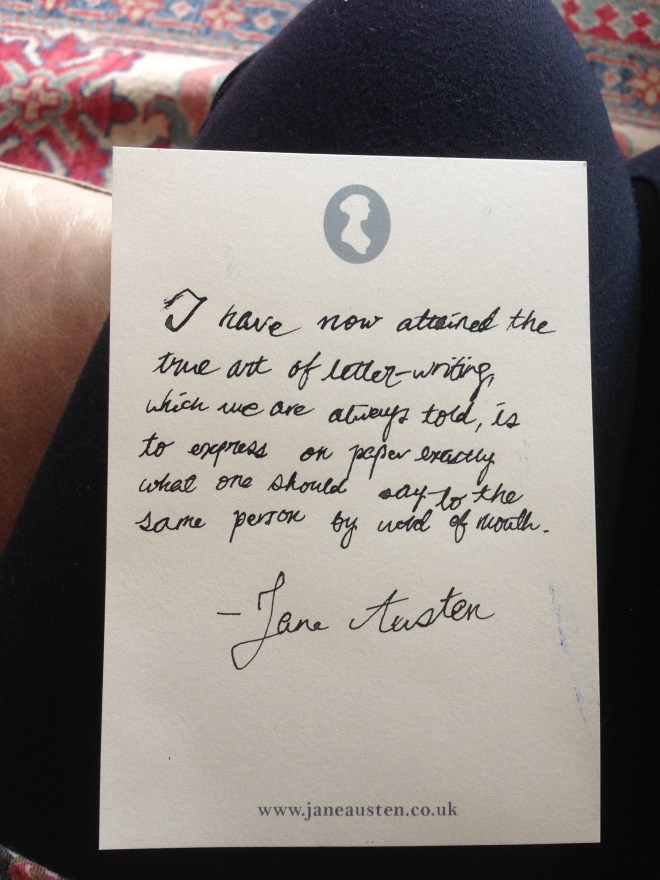 I have now attained the
true art of letter-writing,
which we are always told, is
to express on paper exactly
what one should say to the
same person by word of mouth.
- Jane Austen
www.janeausten.co.uk